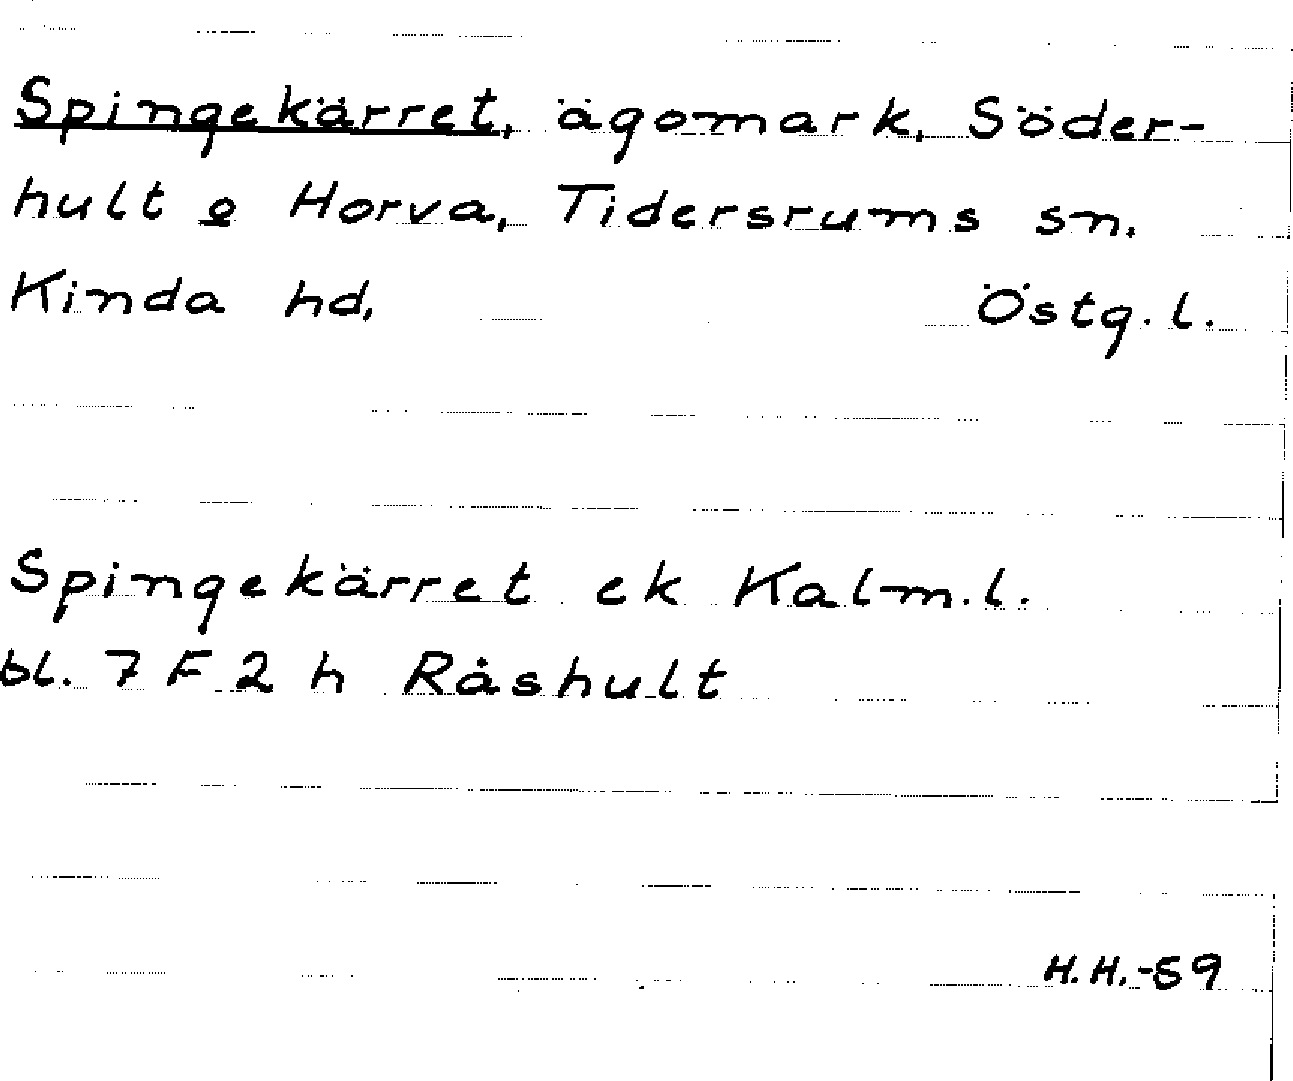 Spingekärret, ägomark, Söder-
hult o Horva, Tidersrums sn.
Kinda hd, Östg. l.
Spingekärret ek Kalm. l.
bl. 7 F 2 h Råshult
H.H.-59